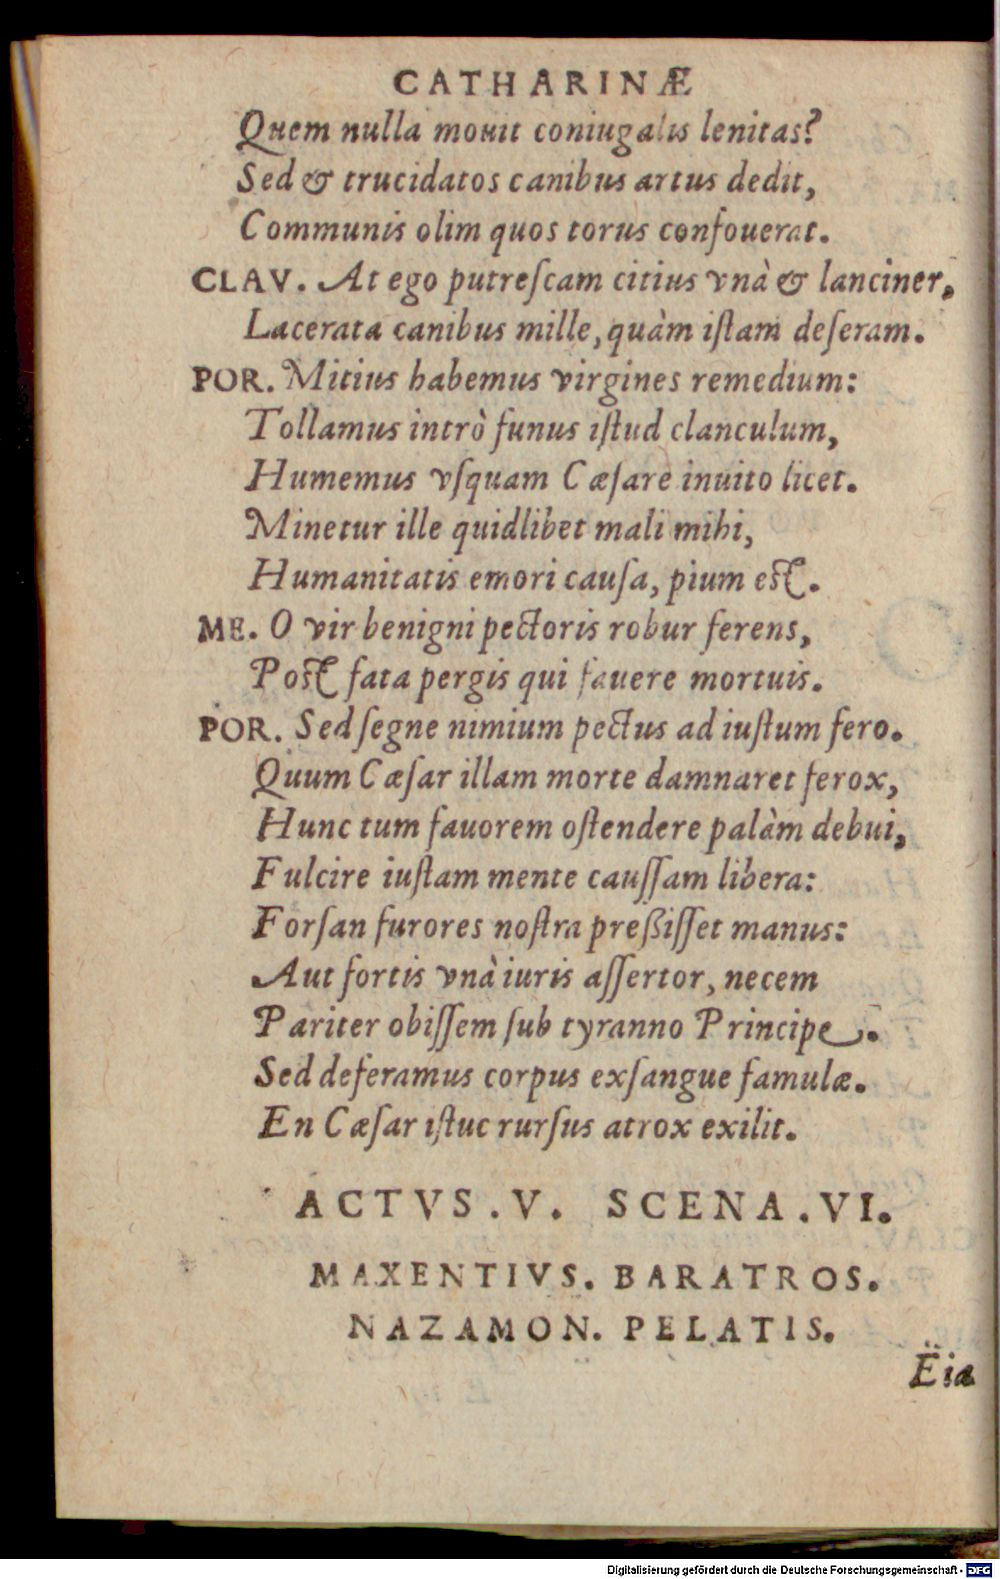 CATHARINÆ
Quem nulla mouit coniugalis lenitas?
Sed & trucidatos canibus artus dedit,
Communis olim quos torus confouerat.
CLAV. At ego putreſcam citius vnà & lanciner,
Lacerata canibus mille, quàm iſtam deſeram.
POR. Mitius habemus virgines remedium:
Tollamus intrò funus iſtud clanculum,
Humemus vſquam Cæſare inuito licet.
Minetur ille quidlibet mali mihi,
Humanitatis emori cauſa, pium eſt.
ME. O vir benigni pectoris robur ferens,
Poſt fata pergis qui fauere mortuis.
POR. Sed ſegne nimium pectus ad iuſtum fero.
Quum Cæſar illam morte damnaret ferox,
Hunc tum fauorem oſtendere palàm debui,
Fulcire iuſtam mente cauſſam libera:
Forſan furores noſtra preßiſſet manus:
Aut fortis vnà iuris aſſertor, necem
Pariter obiſſem ſub tyranno Principe.
Sed deferamus corpus exſangue famulæ.
En Cæſar iſtuc rurſus atrox exilit.
ACTVS.V. SCENA.VI.
MAXENTIVS. BARATROS.
NAZAMON. PELATIS.
Eia
Digitalisierung gefördert durch die Deutsche Forschungsgemeinschaft - DFG